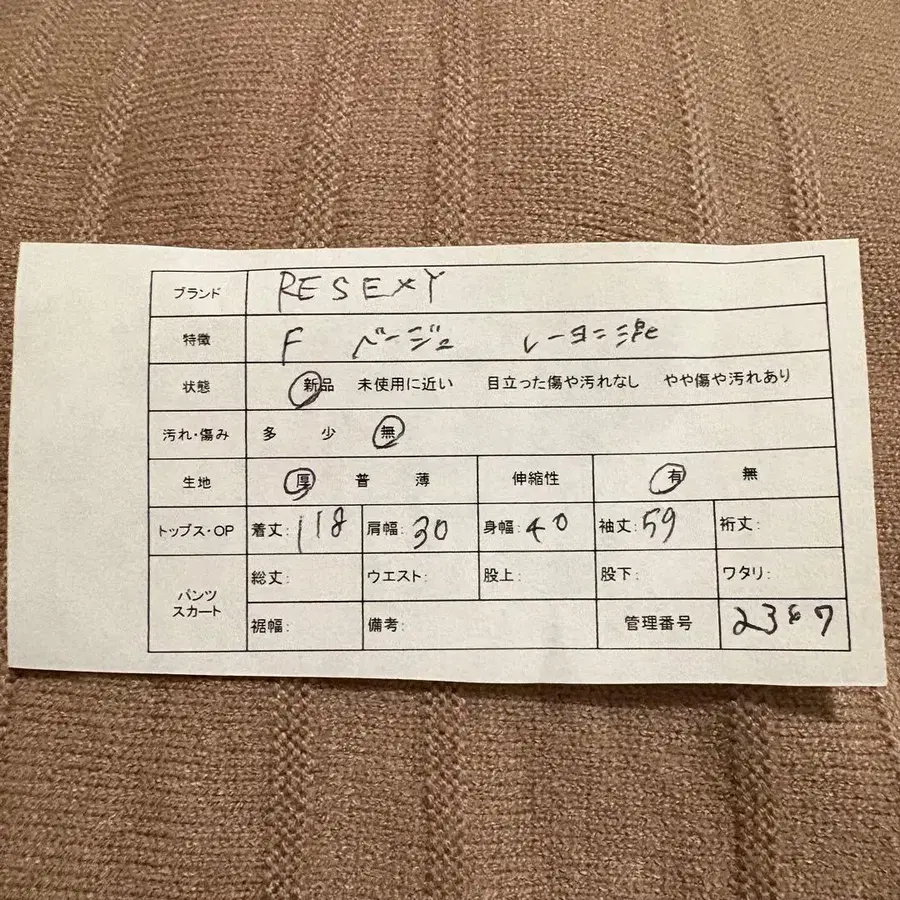 ブランド RESEXY
特徴 F ベージュ レーヨン混
状態 新品 未使用に近い 目立った傷や汚れなし やや傷や汚れあり
汚れ・傷み 多 少 無
生地 厚 普 薄 伸縮性 有 無
トップス・OP 着丈: 118 肩幅: 30 身幅: 40 袖丈: 59 裄丈:
パンツ スカート
総丈: ウエスト: 股上: 股下: ワタリ:
裾幅: 備考: 管理番号